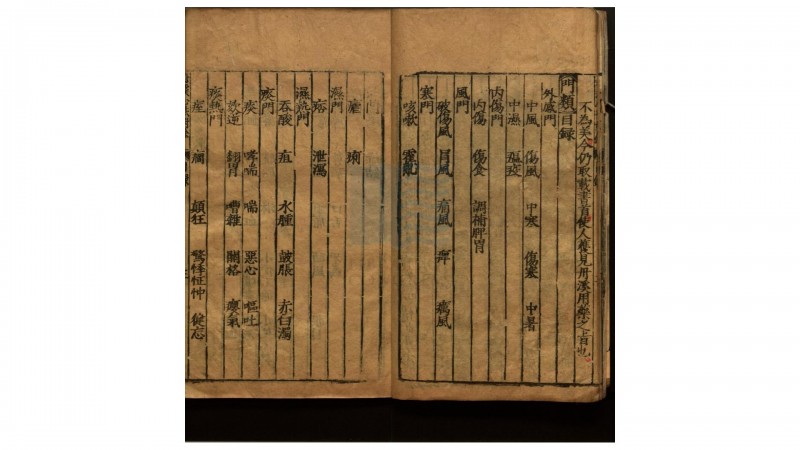 不為美今仍取載書首使人獲見丹溪用藥之旨也
門類目録
外感門
中風 傷風 中寒 傷寒 中暑
中濕 瘟疫
内傷門
内傷 傷食 調補脾胃
風門
破傷風 目風 痛風 痺 癘風
寒門
咳嗽 霍亂
濕門
痓
痞 泄瀉
濕熱門
吞酸 疸 水腫 皷脹 赤白濁
痰門
痰 哮喘 喘 惡心 嘔吐
欬逆 翻胃 嘈雜 關格
痰熱門
痓 癇 顛狂 驚悸怔忡 健忘